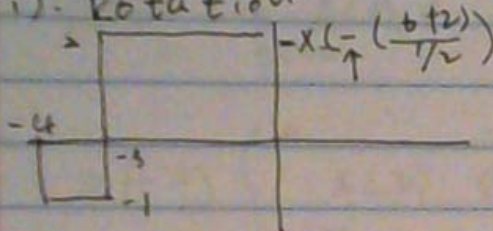 1). Rotation
2 -x(-(\frac{t+2}{1/2}))
↑
-4
-3
-1